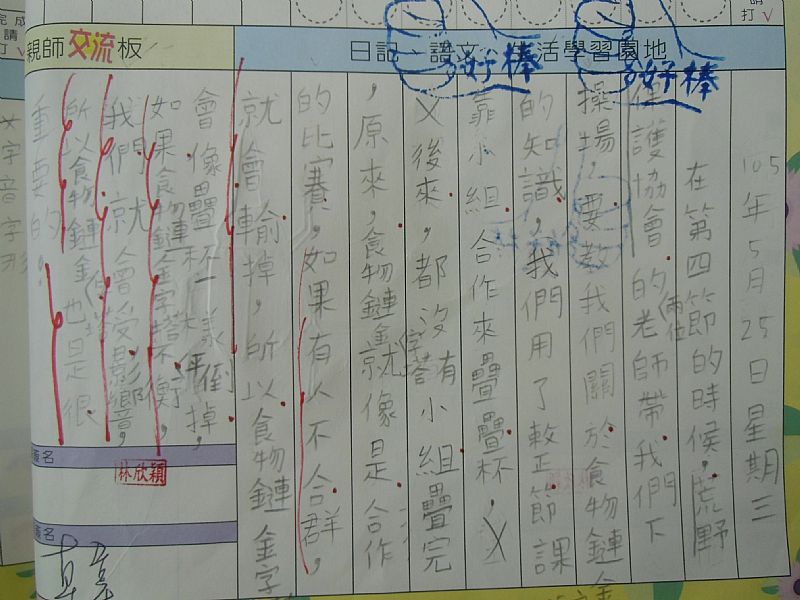 完成
請
打√
請
打√
親師交流板
日記、語文、生活學習園地
好棒
好棒
105年5月25日星期三
在第四節的時候,荒野
保護協會的兩位老師帶我們下
操場,要教我們關於食物鏈金
的知識,我們用了整節課
靠小組合作來疊疊杯,
後來,都沒有小組疊完
,原來,食物鏈金字塔就像是合作
的比賽,如果有人不合群,
就會輸掉,所以食物鏈金字
會像疊杯一樣倒掉,
如果食物鏈金字塔不平衡,
我們就會受影響,
所以食物鏈金字塔也是很
重要的。
簽名
林欣穎
簽名
文字音字形